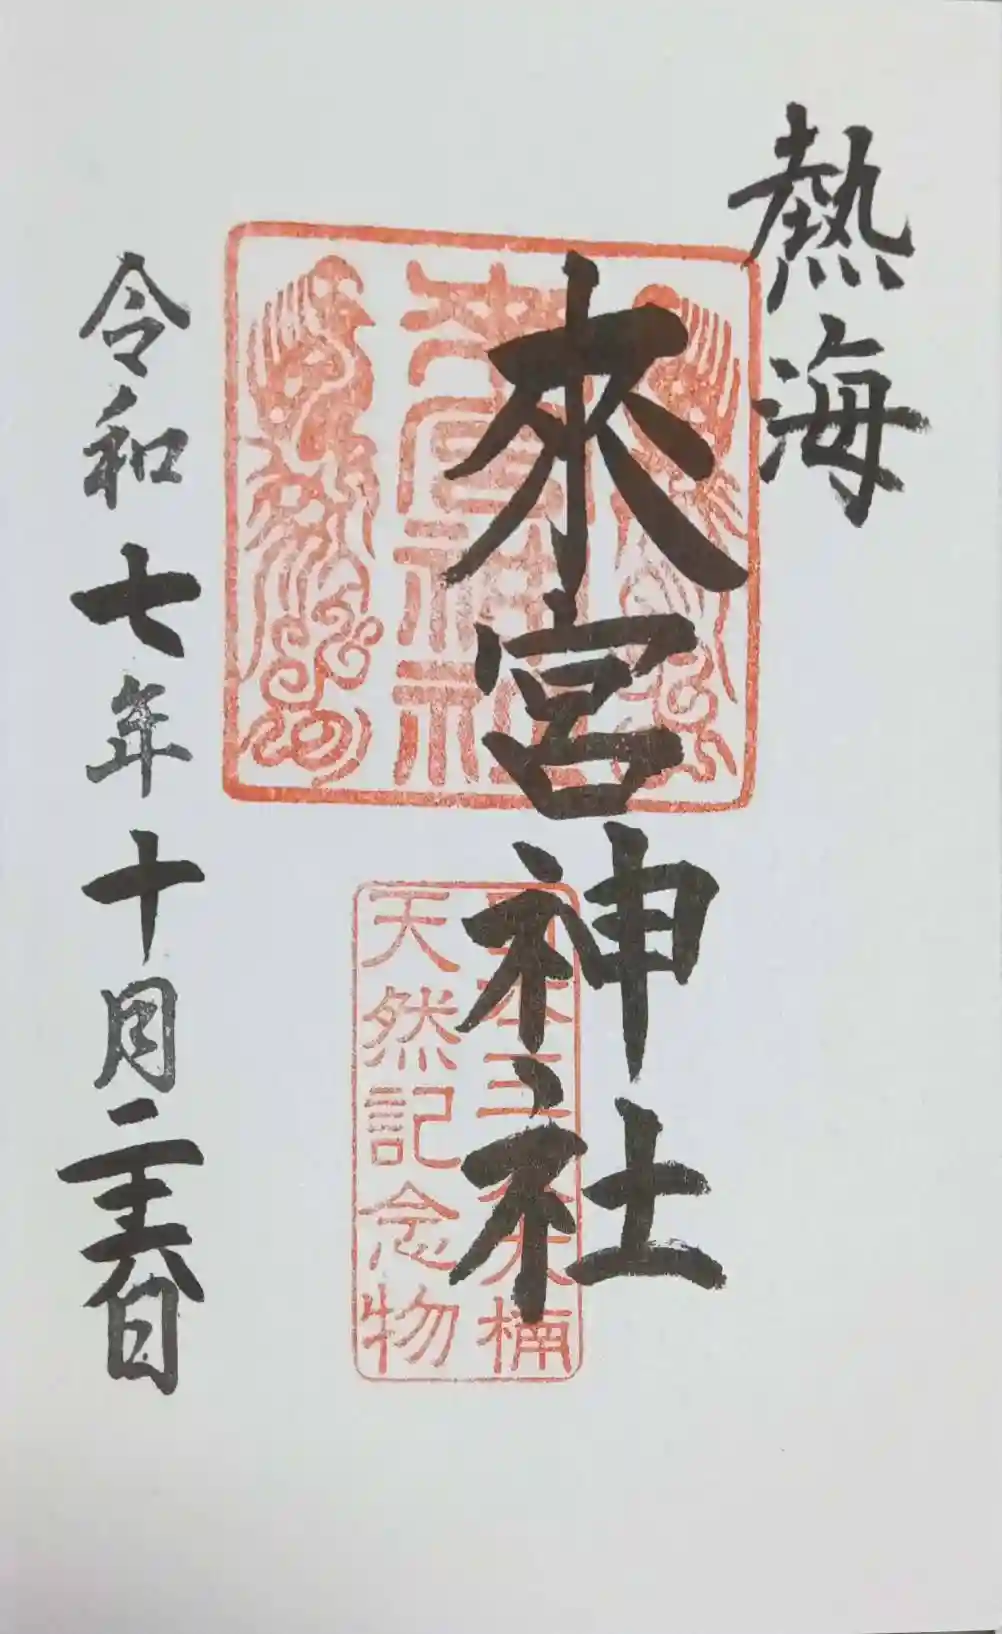 熱海
來宮神社
來宮神社
日本三大大楠
天然記念物
令和七年十月二十六日